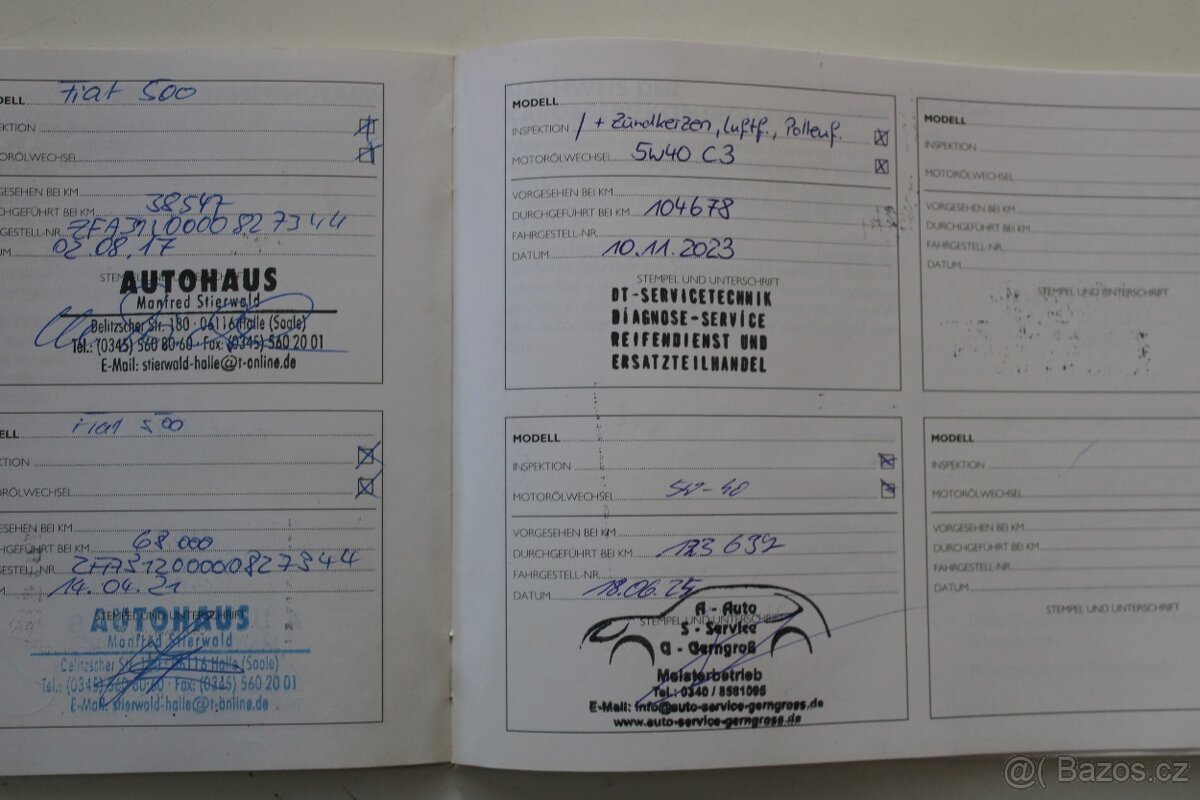 DELL Fiat 500
EKTION
TORÖLWECHSEL
GESEHEN BEI KM
CHGEFÜHRT BEI KM 38547
GESTELL-NR. ZFA3120000827344
UM 02.08.17
AUTOHAUS
Manfred Stierwald
Delitzscher Str. 180 · 06116 Halle (Saale)
Tel.: (0345) 560 80 60 · Fax: (0345) 560 20 01
E-Mail: stierwald-halle@t-online.de
ELL Fiat 500
TION
RÖLWECHSEL
ESEHEN BEI KM
HGEFÜHRT BEI KM 68 000
ESTELL-NR.
M 14.04.21
STEMPEL UND UNTERSCHRIFT
AUTOHAUS
Manfred Stierwald
Delitzscher Str. 180 · 06116 Halle (Saale)
Tel.: (0345) 560 80 60 · Fax: (0345) 560 20 01
E-Mail: stierwald-halle@t-online.de
MODELL
INSPEKTION / + Zündkerzen, Luftf., Pollenf.
MOTORÖLWECHSEL 5W40 C3
VORGESEHEN BEI KM
DURCHGEFÜHRT BEI KM 104678
FAHRGESTELL-NR.
DATUM 10.11.2023
STEMPEL UND UNTERSCHRIFT
DT-SERVICETECHNIK
DIAGNOSE-SERVICE
REIFENDIENST UND
ERSATZTEILHANDEL
MODELL
INSPEKTION
MOTORÖLWECHSEL 5W-40
VORGESEHEN BEI KM
DURCHGEFÜHRT BEI KM 123 637
FAHRGESTELL-NR.
DATUM 18.06.25
STEMPEL UND UNTERSCHRIFT
A - Auto
S - Service
G - Gerngroß
Meisterbetrieb
Tel.: 0340 / 8581095
E-Mail: info@auto-service-gerngross.de
www.auto-service-gerngross.de
MODELL
INSPEKTION
MOTORÖLWECHSEL
VORGESEHEN BEI KM
DURCHGEFÜHRT BEI KM
FAHRGESTELL-NR.
DATUM
STEMPEL UND UNTERSCHRIFT
MODELL
INSPEKTION
MOTORÖLWECHSEL
VORGESEHEN BEI KM
DURCHGEFÜHRT BEI KM
FAHRGESTELL-NR.
DATUM
STEMPEL UND UNTERSCHRIFT
@( Bazoš.cz